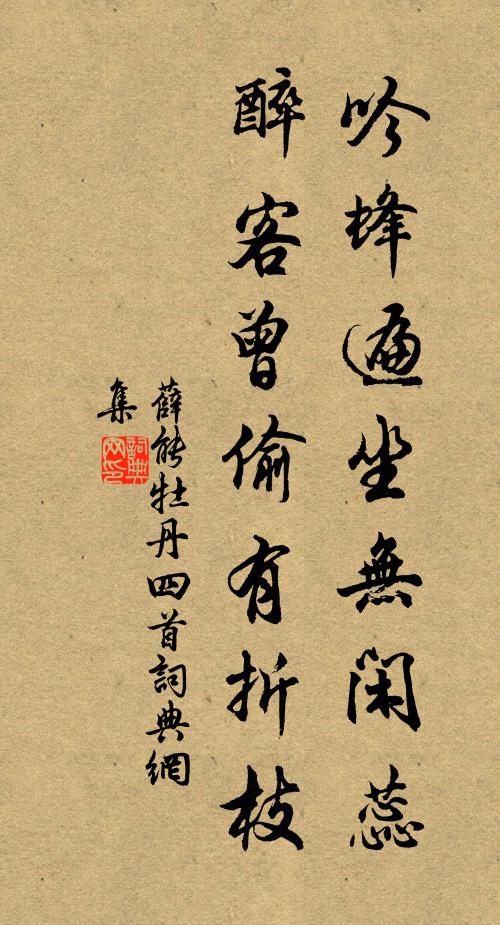 吟蜂遍坐無閑蕊
醉客曾偷有折枝
薛能牡丹四首詞典網
集
詞典
网印